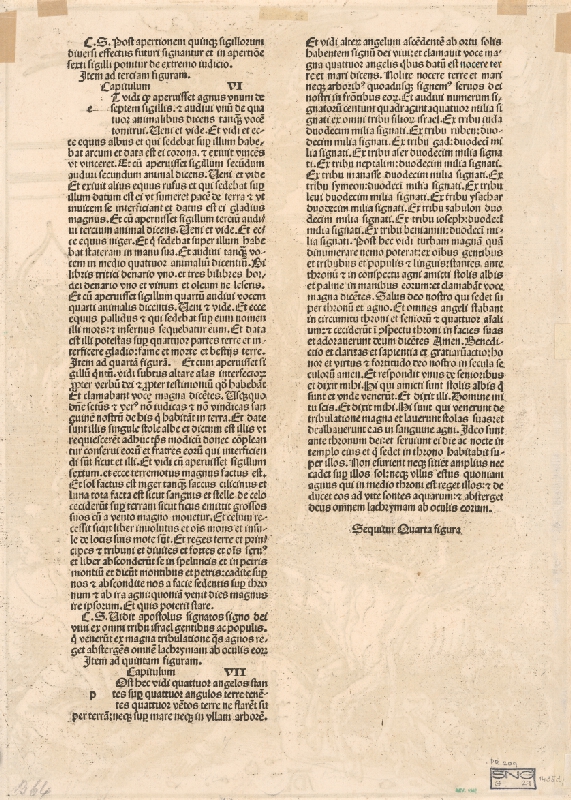 C. S. Post apertionem quinq; sigillorum
diuersi effectus futuri signantur et in apertiōe
sexti sigilli ponitur de extremo iudicio.
Item ad terciam figuram.
Capitulum VI
e T vidi qͥ aperuisset agnus vnum de
septem sigillis. ⁊ audiui vnū de qua
tuor animalibus dicens tanqͥ vocē
tonitrui. Ueni et vide. Et vidi et ec-
ce equus albus et qui sedebat sup illum habe-
bat arcum et data est ei corona. ⁊ exiuit vincēs
vt vinceret. Et cū aperuisset sigillum secūdum
audiui secundum animal dicens. Ueni et vide
Et exiuit alius equus rufus et qui sedebat sup
illum datum est ei vt sumeret pacē de terra ⁊ vt
inuicem se interficiant et datus est ei gladius
magnus. Et cū aperuisset sigillum terciū audi-
ui tercium animal dicens. Ueni et vide. Et ec-
ce equus niger. Et q̇ sedebat super illum habe
bat stateram in manu sua. Et audiui tanqͥ vo-
cem in medio quatuor animaliū dicentiū. Bi
libris tritici denario vno. et tres bilibres hor,
dei denario vno et vinum et oleum ne leseris.
Et cū aperuisset sigillum quartū audiui vocem
quarti animalis dicentis. Ueni ⁊ vide. Et ecce
equus pallidus ⁊ qui sedebat sup eum nomen
illi mors: ⁊ infernus sequebatur eum. Et data
est illi potestas sup quattuor partes terre et in-
terficere gladio: fame et morte et bestijs terre.
Item ad quartā figurā. Et cum aperuisset si-
gillū qͥntū. vidi subtus altare aīas interfectoꝝ
ꝓpter verbū dei ⁊ ꝓpter testimoniū qḋ habebāt
Et clamabant voce magna dicētes. Usq;quo
dn̄e sctūs ⁊ verꝰ nō iudicas ⁊ nō vindicas san
guinē nostrū de his q̇ habitāt in terra. Et date
sunt illis singule stole albe et dicentū est illis vt
requiescerēt adhuc tp̄s modicū donec cōplean
tur conserui eoꝝ et fratres eoꝝ qui interficien
di sūt sicut et illi. Et vidi cū aperuisset sigillum
sextum. et ecce terremotus magnus factus est.
Et sol factus est niger tanqͥ saccus cilicinus et
luna tota facta est sicut sanguis et stelle de celo
ceciderūt sup terram sicut ficus emittit grossos
suos cū a vento magno mouetur. Et celum re-
cessit sicut liber inuolutus et oīs mons et insu-
le de locis suis mote sūt. Et reges terre et prin-
cipes ⁊ tribuni et diuites et fortes et oīs seruꝰ
et liber absconderūt se in speluncis et in petris
montiū et dicūt montibus et petris: cadite sup
nos ⁊ abscondite nos a facie sedentis sup thro
num ⁊ ab ira agni: quoniā venit dies magnus
ire ipsorum. Et quis poterit stare.
C. S. Uidit apostolus signatos signo dei
viui ex omni tribu israel gentibus ac populis.
q̇ venerūt ex magna tribulatione qͣs agnos re-
get abstergēs omnē lachrymam ab oculis eoꝝ
Item ad quintam figuram.
Capitulum VII
p Ost hec vidi quattuor angelos stan
tes sup quattuor angulos terre tenē-
tes quattuor vētos terre ne flarēt su
per terrā: neq; sup mare neq; in vllam arborē.
Et vidi alterꝝ angelum ascēdentē ab ortu solis
habentem signū dei viui: et clamauit voce ma
gna quatuor angelis qͥbus datū est nocere ter
re et mari dicens. Nolite nocere terre et mari
neq; arboribꝰ quoadusq; signemꝰ seruos dei
nostri in frōtibus eoꝝ. Et audiui numerum si-
gnatorū centum quadraginta quatuor milia si
gnati ex omni tribu filioꝝ israel. Ex tribu iuda
duodecim milia signati. Ex tribu ruben: duo-
decim milia signati. Ex tribu gad: duodeci mi
lia signati. Ex tribu aser duodecim milia signa
ti. Ex tribu neptalim: duodecim milia signati.
Ex tribu manasse duodecim milia signati. Ex
tribu symeon: duodeci milia signati. Ex tribu
leui duodecim milia signati. Ex tribu ysachar
duodecim milia signati. Ex tribu zabulon duo
decim milia signati. Ex tribu ioseph: duodeci
milia signati. Ex tribu beniamin: duodeci mi-
lia signati. Post hec vidi turbam magnā quā
dinumerare nemo poterat: ex oībus gentibus
et tribubus et populis ⁊ linguis: stantes ante
thronū ⁊ in conspectu agni amicti stolis albis
et palme in manibus eorum: et clamabāt voce
magna dicētes. Salus deo nostro qui sedet su
per thronū et agno. Et omnes angeli stabant
in circuitu throni et senioꝝ ⁊ quattuor aīali
um: ⁊ ceciderūt ī ꝓspectu throni in facies suas
et adorauerunt deum dicētes Amen. Benedi-
ctio et claritas et sapientia et gratiaꝝ actio: ho
nor et virtus ⁊ fortitudo deo nostro in secula se
culorū amen. Et respondit vnus de senioribus
et dixit mihi. Hi qui amicti sunt stolis albis q̇
sunt et vnde venerūt. Et dixit illi. Domine mi
tu scis. Et dixit mihi. Hi sunt qui venerunt de
tribulatione magna et lauerunt stolas suas: et
dealbauerunt eas in sanguine agni. Ideo sunt
ante thronum dei: et seruiunt ei die ac nocte in
templo eius et q̇ sedet in throno habitabit su-
per illos. Non esurient neq; sitiēt amplius nec
cadet sup illos sol: neq; vllus estus quoniam
agnus qui in medio throni est reget illos: ⁊ de
ducet eos ad vite fontes aquarum: ⁊ absterget
deus omnem lachrymam ab oculis eorum.
Sequitur Quarta figura.
SNG